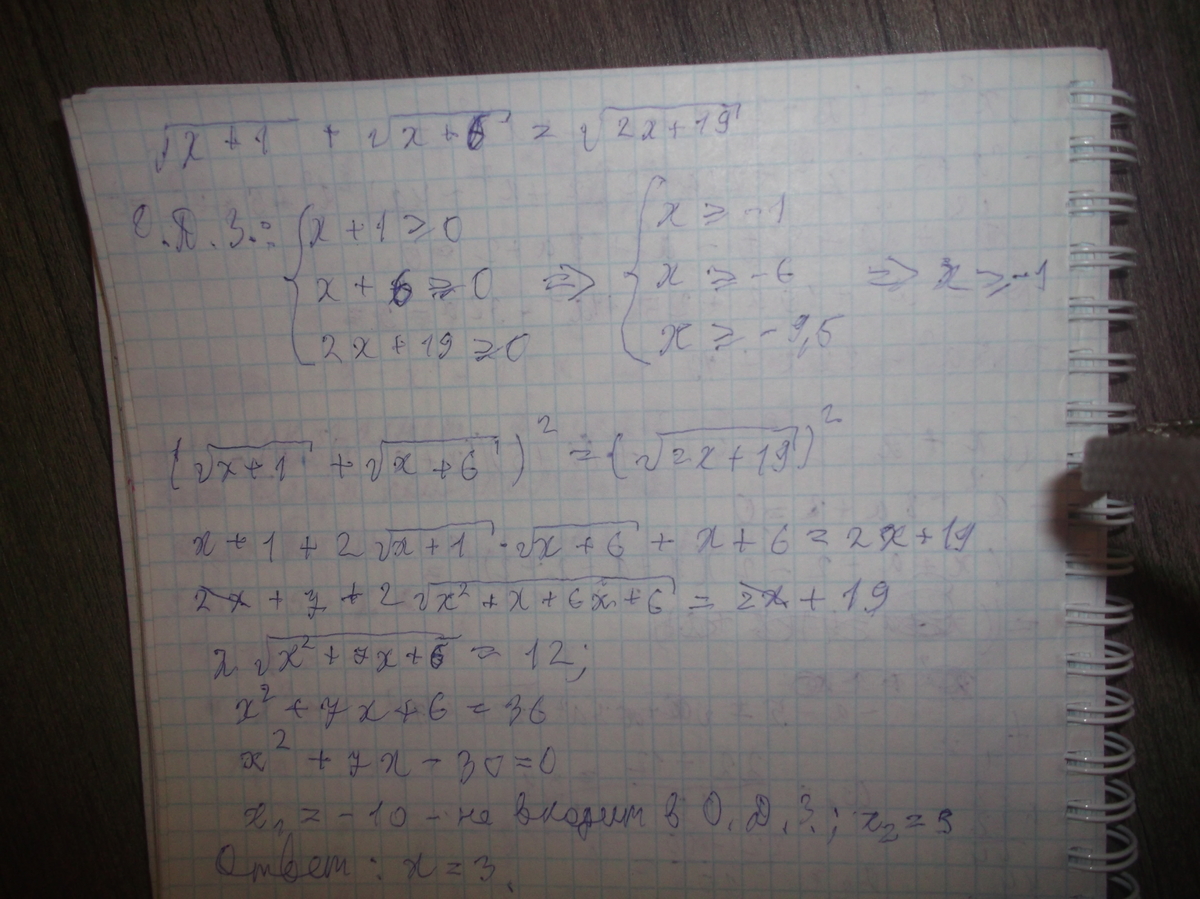 √x+1 + √x+6 = √2x+19
О.Д.З.: { x+1 ≥ 0 ⇒ { x ≥ -1
x+6 ≥ 0 x ≥ -6 ⇒ x ≥ -1
2x+19 ≥ 0 x ≥ -9,5
(√x+1 + √x+6)² = (√2x+19)²
x+1+2√x+1 · √x+6 + x+6 = 2x+19
2x + 7 + 2√x²+x+6x+6 = 2x + 19
2√x²+7x+6 = 12;
x²+7x+6 = 36
x²+7x-30=0
x₁ = -10 - не входит в О.Д.З.; x₂ = 3
Ответ: x = 3.